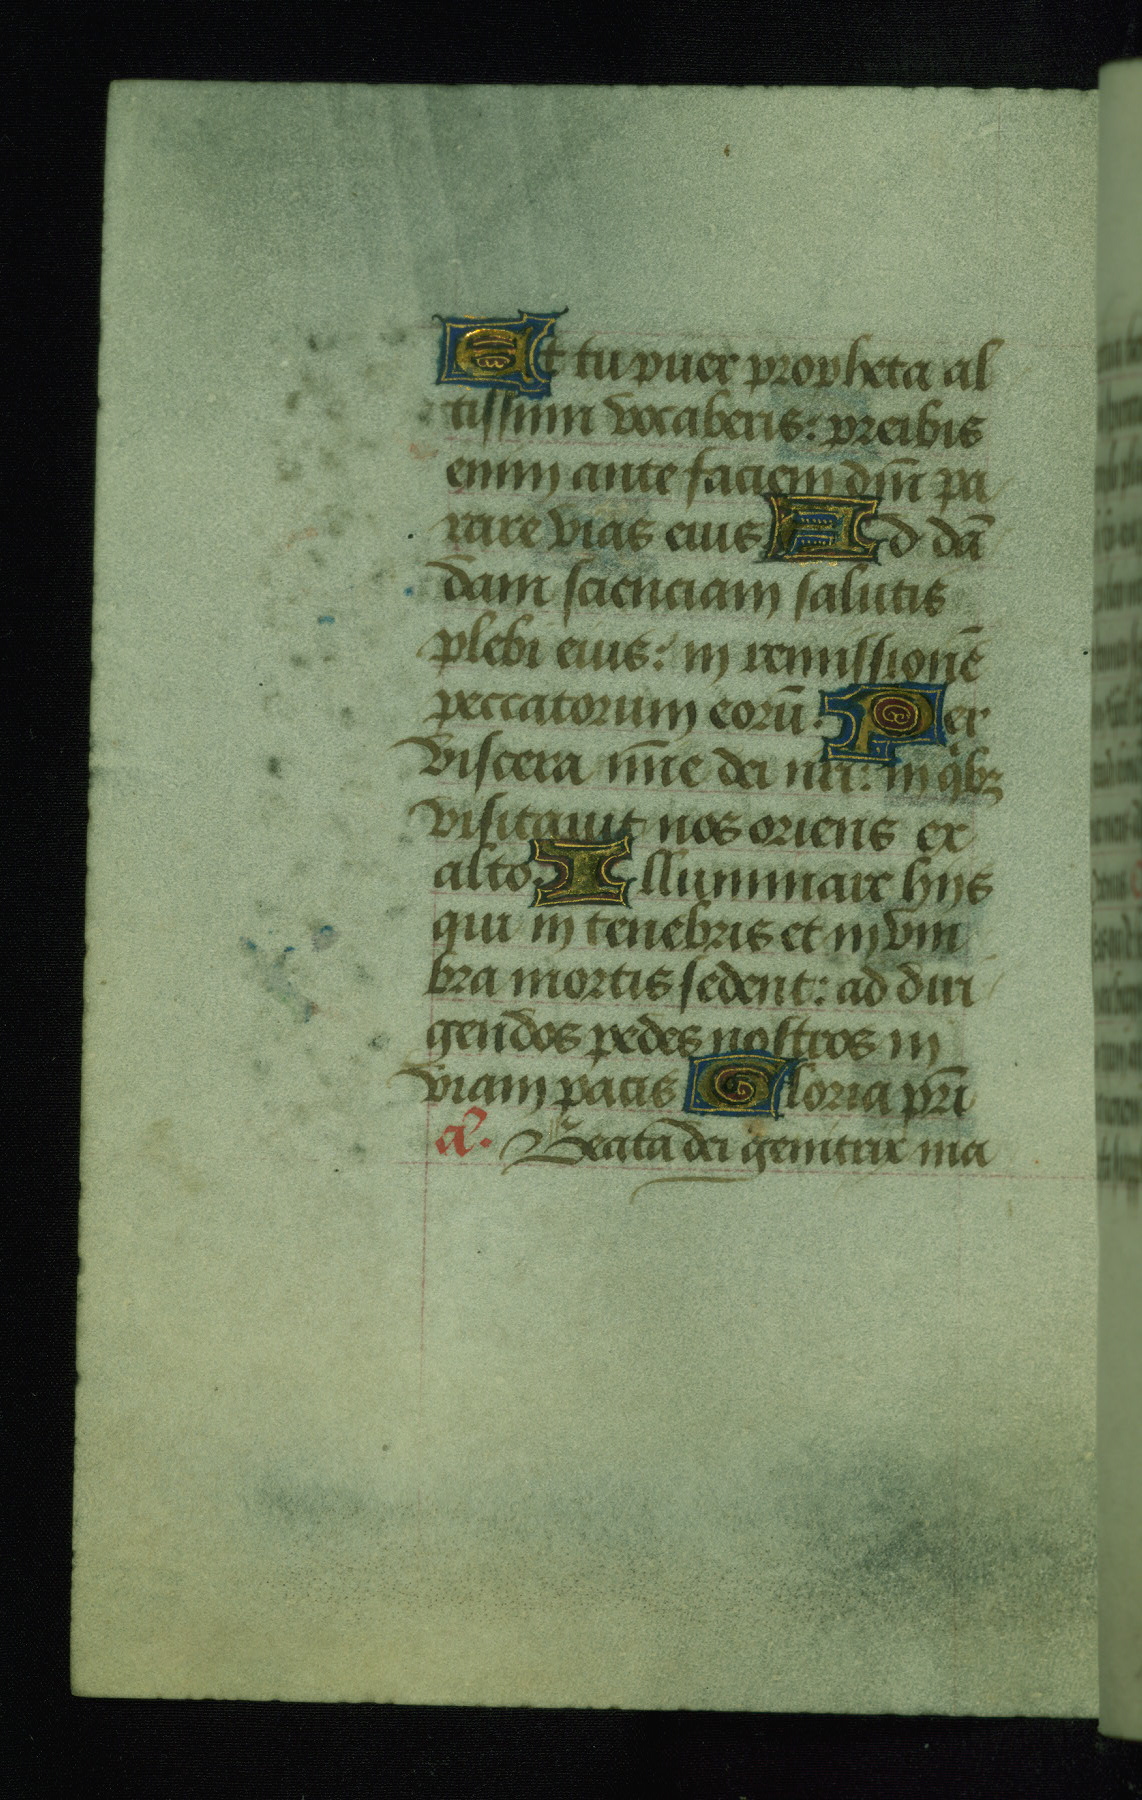 Et tu puer propheta al
tissimi vocaberis: preibis
enim ante faciem dm̄ pa
rare vias eius Ad dā
dam scienciam salutis
plebi eius: in remissionē
peccatorum eorū: Per
viscera mīe dei nr̄i: in qͥbꝫ
visitauit nos oriens ex
alto. Illuminare hijs
qui in tenebris et in vm
bra mortis sedent: ad diri
gendos pedes nostros in
viam pacis Gloria pr̄i
a̅. Beata dei genitrix ma